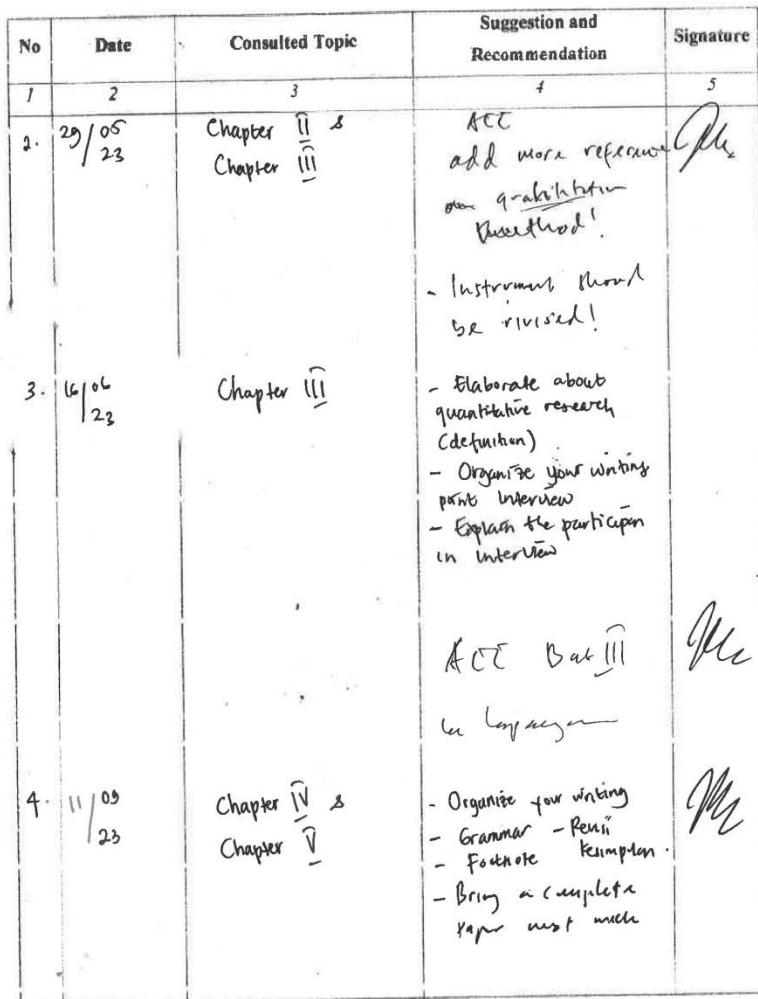 No Date Consulted Topic Suggestion and Recommendation Signature
1 2 3 4 5
2. 29/05 23 Chapter II & Chapter III
ACC
add more reference
method!
- Instrument should
be rivised!
3. 16/06 23 Chapter III
- Elaborate about
quantitative research
(definition)
- Organize your writing
point interview
- Explain the participan
in interview
ACC Bab III
ke lapangan
4. 11/09 23 Chapter IV & Chapter V
- Organize your writing
- Grammar - Revisi
- Footnote kesimpulan.
- Bring a complete
paper next